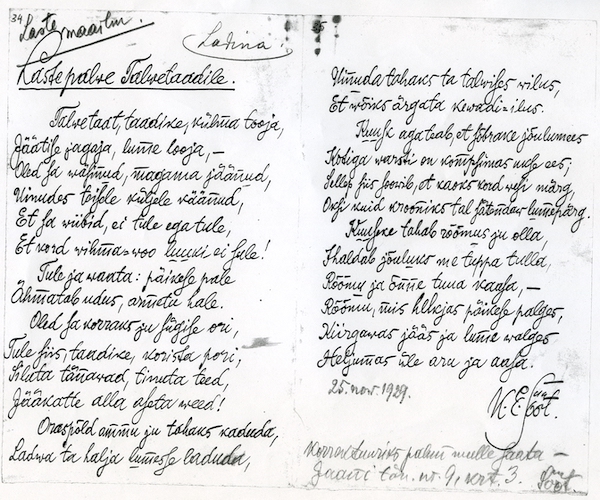 34
Laste maailm.
Ladina.
Lastepalve Talvetaadile.
Talvetaat, taadike, külma tooja,
Jäätise jagaja, lume looja, —
Oled sa väsinud, magama jäänud,
Uinudes teisele küljele käänud,
Et sa viibid, ei tule ega tule,
Et kord vihma-voo luuki ei sule!
Tule ja waata: päikese pale
Ähmatab udus, armetu hale.
Oled sa korraks ju sügise ori,
Tule siis, taadike, korista pori,
Siluta tänavad, tinuta teed,
Jääkatte alla aseta weed!
Oraspõld ammu ju tahaks kaduda,
Ladwa ta halja lumesse laduda,
35
Uinuda tahaks ta talwises wilus,
Et võiks ärgata kewadi-ilus.
Kuusk aga teab, et sõbrake jõulumees
Kotiga warsti on kompsimas ukse ees;
Selleks siis soovib, et kaoks kord vesi märg,
Oksi kuid krooniks tal sätendav lumepärg.
Kuuske tahab rõõmus ju olla,
Ihaldab jõuluks me tuppa tulla,
Rõõmu ja õnne tuua kaasa, —
Rõõmu, mis helkjas päikese palges,
Kiirgavas jääs ja lume walges
Heljumas üle aru ja aasa.
25. nov. 1929.
K E Sööt.
Korrektuuriks palun mulle saata —
Jaani tän. nr. 9, krt. 3.
Sööt.